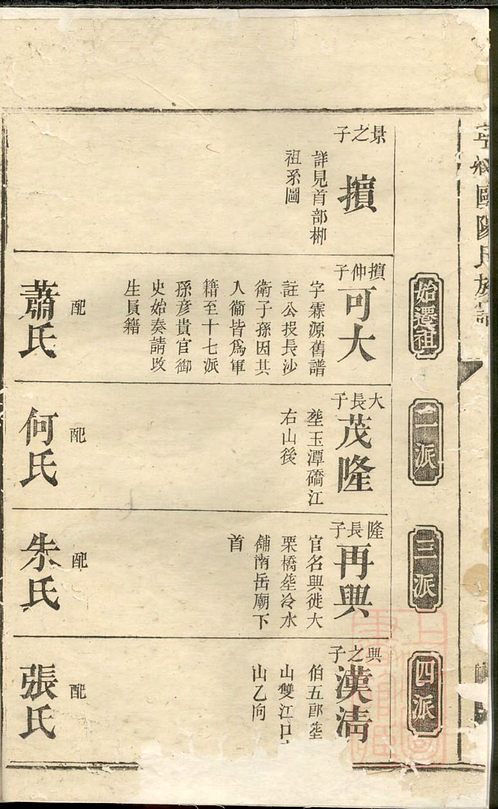 歐陽氏族譜
始遷祖
二派
三派
四派
景之子
擴
詳見首部郴
祖系圖
擴仲子
可大
字霖源舊譜
註公投長沙
衛子孫因其
人衞皆為軍
籍至十七派
孫彥貴官御
史始奏請改
生員籍
配
蕭氏
大長子
茂隆
塟玉潭礄江
右山後
配
何氏
隆長子
再興
官名興徙大
栗橋塟冷水
舖南岳廟下
首
配
朱氏
興之子
漢清
伯五郎塟
山雙江口
山乙向
配
張氏